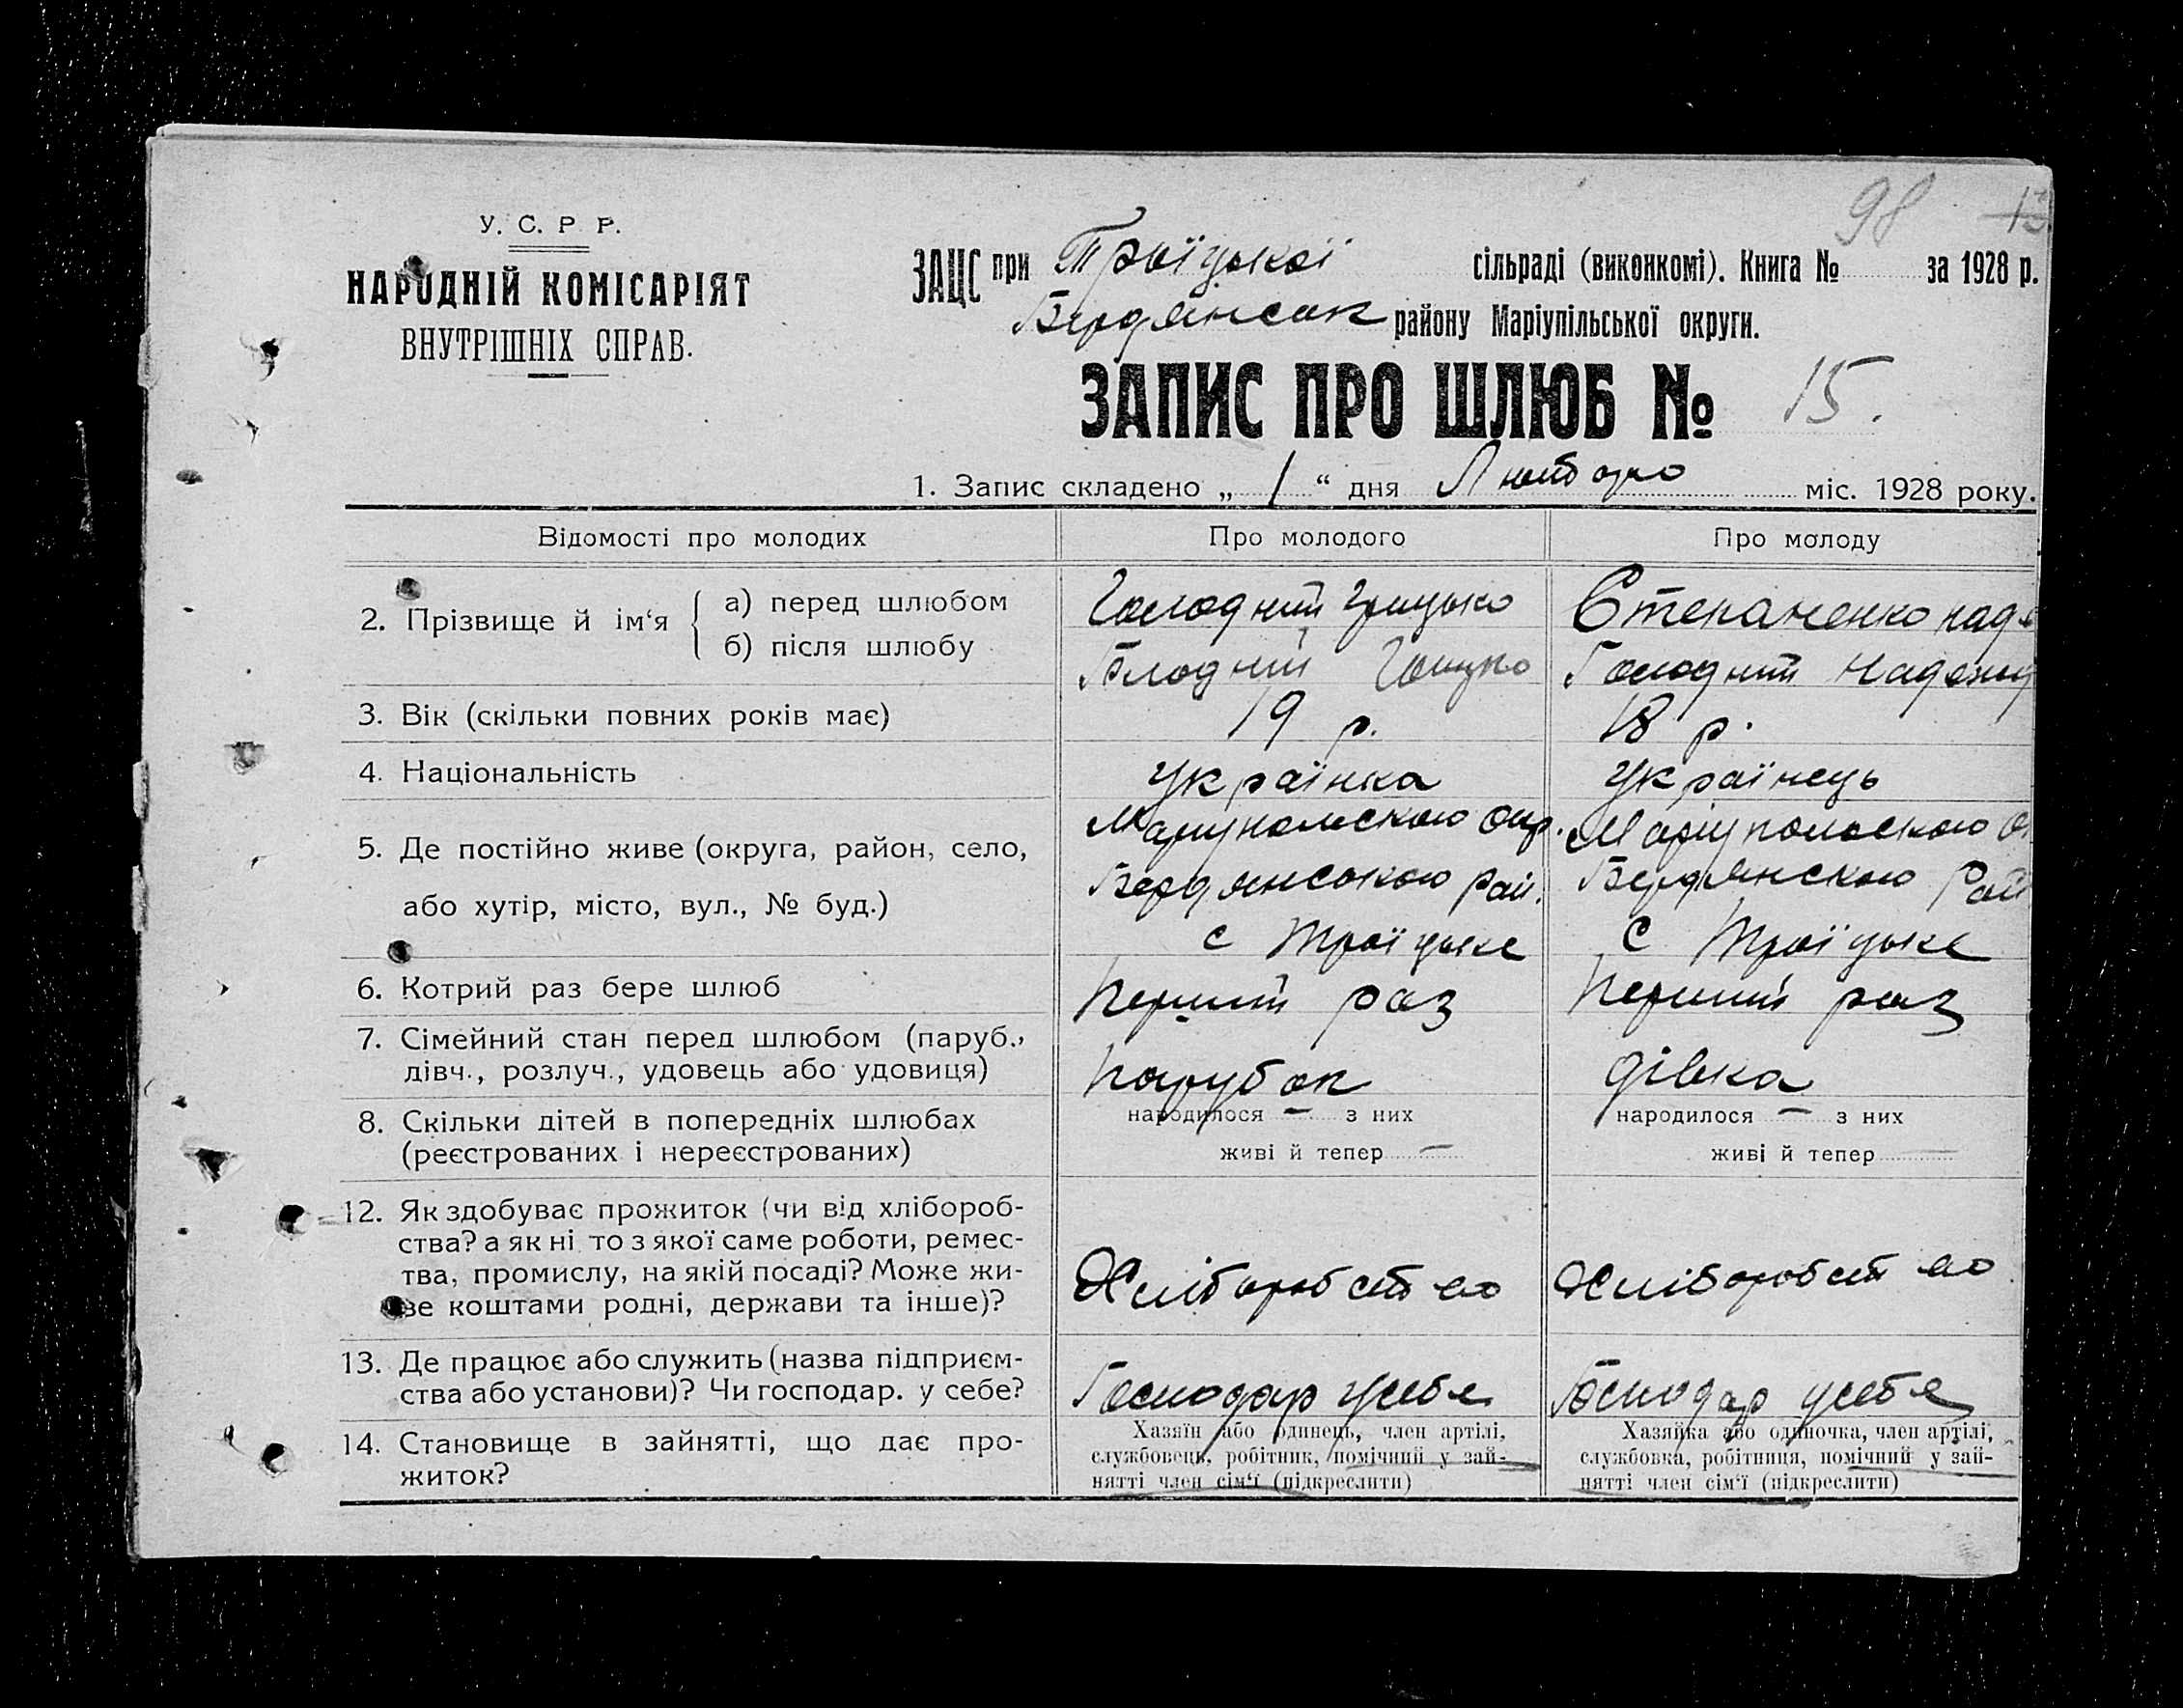 98 13
У. С. Р. Р.
НАРОДНІЙ КОМІСАРІЯТ
ВНУТРІШНІХ СПРАВ.
ЗАЦС при Троїцької сільраді (виконкомі). Книга № за 1928 р.
Бердянськ району Маріупільської округи.
ЗАПИС ПРО ШЛЮБ № 15.
1. Запис складено „ 1 “ дня Лютого міс. 1928 року.
Відомості про молодих Про молодого Про молоду
2. Прізвище й ім‘я { а) перед шлюбом Голодний Грицько Степаненко Наде
б) після шлюбу Голодний Грицко Голодний Надежд
3. Вік (скільки повних років має) 19 р. 18 р.
4. Національність Українка Українець
5. Де постійно живе (округа, район, село, Маріупольскою Окр. Маріупольскою О
або хутір, місто, вул., № буд.) Бердянською Рай. Бердянскою Рай
с Троїцьке с Троїцьке
6. Котрий раз бере шлюб Перший раз Перший раз
7. Сімейний стан перед шлюбом (паруб.,
дівч., розлуч., удовець або удовиця) парубок дівка
8. Скільки дітей в попередніх шлюбах народилося – з них народилося – з них
(реєстрованих і нереєстрованих) живі й тепер – живі й тепер –
12. Як здобуває прожиток (чи від хлібороб-
ства? а як ні то з якої саме роботи, ремес-
тва, промислу, на якій посаді? Може жи- Хліборобство Хліборобство
ве коштами родні, держави та інше)?
13. Де працює або служить (назва підприєм-
ства або установи)? Чи господар. у себе? Господар усебе Господар усебе
14. Становище в зайнятті, що дає про- Хазяїн або одинець, член артілі, Хазяйка або одиночка, член артілі,
житок? службовець, робітник, помічний у зай- службовка, робітниця, помічний у зай-
нятті член сім‘ї (підкреслити) нятті член сім‘ї (підкреслити)